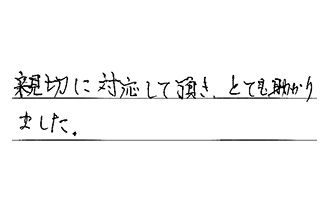 親切に対応して頂き、とても助かり
ました。